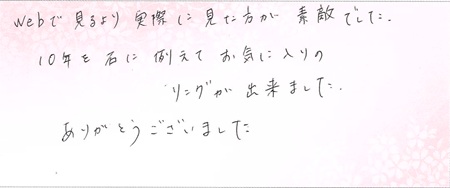 webで見るより実際に見た方が素敵でした.
10年を石に例えてお気に入りの
リングが出来ました.
ありがとうございました